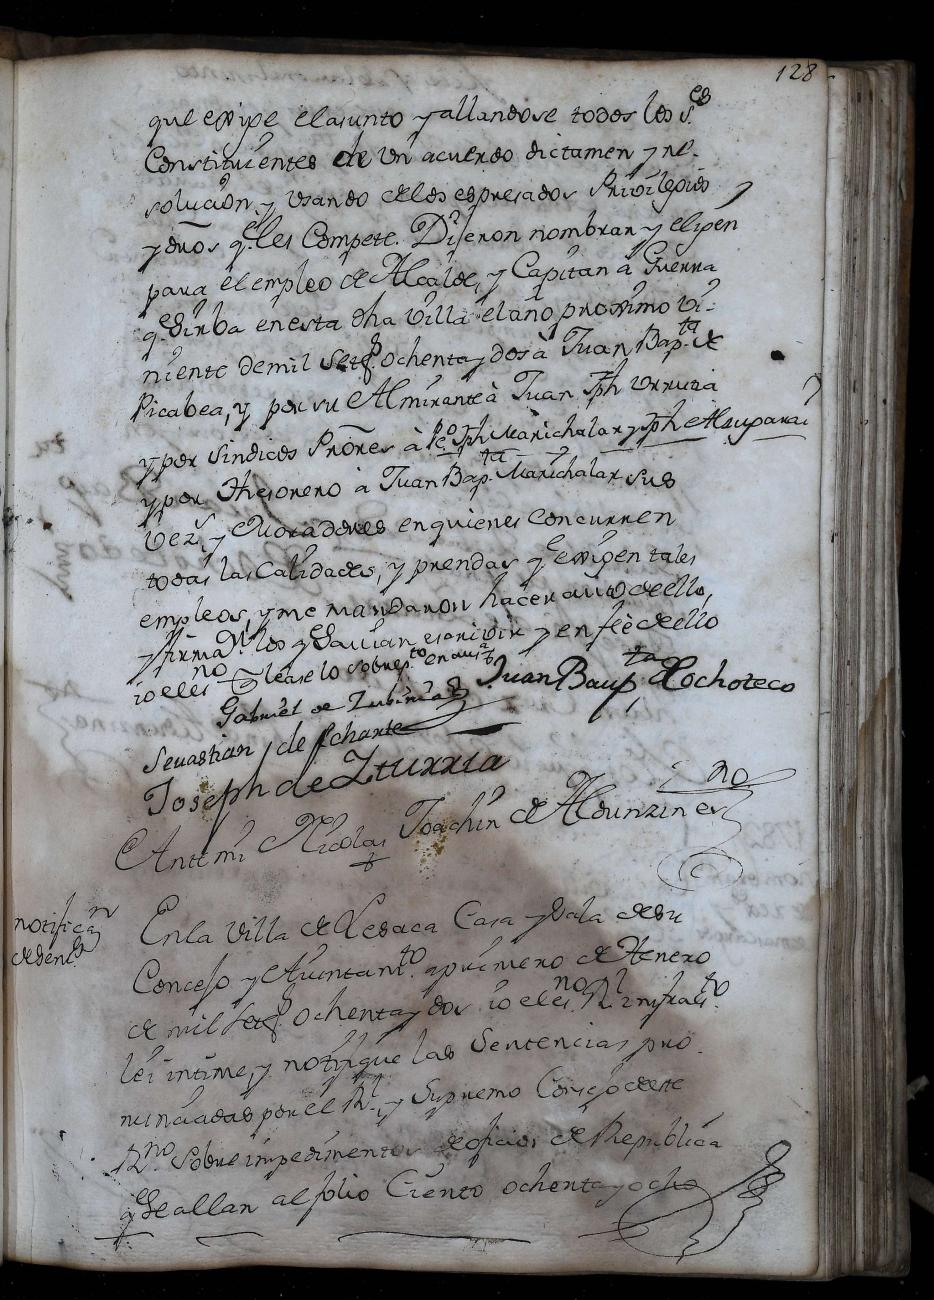 128
que exipe el asunto y allandose todos los S.es
Constituientes de un acuerdo dictamen y re-
solucion y usando de los espresados Privilegios
y dr̃os q.e les Compete. Dijeron nombran y elipen
para el empleo de Alcalde, y Capitan à Guerra
q.e sirba en esta dha villa el año proximo vi-
niente de mil set.s ochenta y dos à Juan Bap.ta de
Picabea, y por su Almirante à Juan Jph Urrutia
y por Sindicos Prõres à P.o Jph Marichalar y Jph Alsuparai
y por Thesorero à Juan Bap.ta Marichalar sus
Vez.s y Moradores en quienes concurren
todas las Calidades, y prendas q.e exigen tales
empleos, y me mandaron hacer auto de ello,
y firmaron los q.e savian escrivir y en feè de ello
io el es.no
Juan Baup.ta de Ochoteco
Gabriel de Zubiria
Sevastian de Echarte
Joseph de Yturria
Ante mi Nicolas Joachin de Aldunzin es.no
notificaz.n
de sent.s
En la villa de Lesaca Casa y Sala de su
Concejo y Aiuntam.to a primero de Henero
de mil set.s ochenta y dos io el es.no R.l infraes.to
lei intime, y notifique las Sentencias pro-
nunciadas por el R.l y Supremo Consejo de este
R.no sobre impedimentos de oficios de Republica
q.e se allan al folio Ciento ochenta y ocho